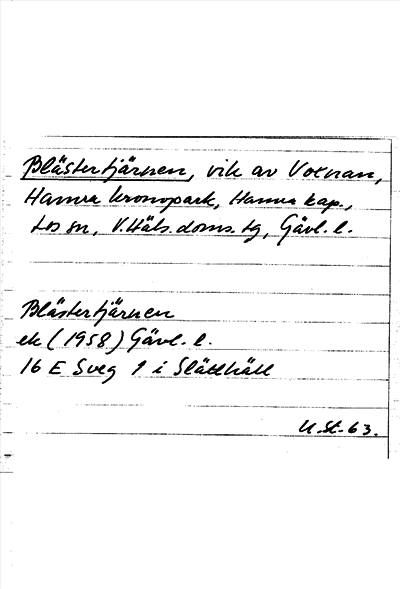 Blästertjärnen, vik av Voxnan,
Hamra kronopark, Hamra kap.,
Los sn, V. Häls. doms. tg, Gävl. l.
Blästertjärnen
ek (1958) Gävl. l.
16 E Sveg 9 i
U. St. 63.